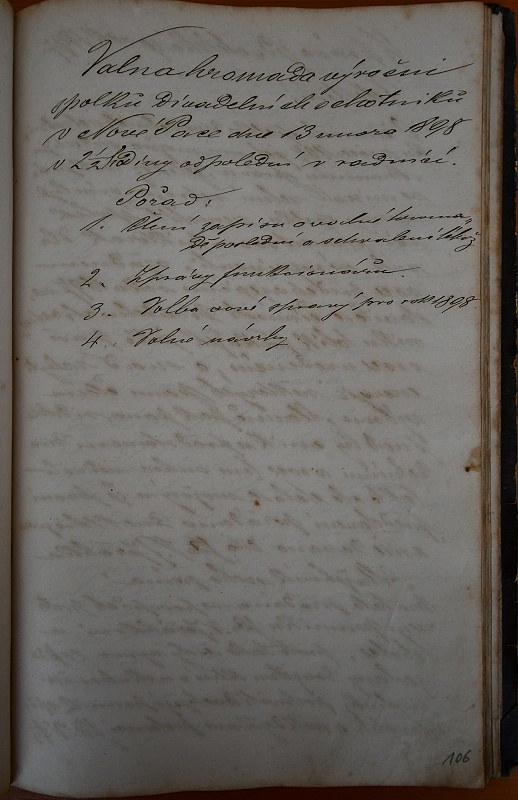 Valna hromada výroční
spolku divadelních ochotníků
v Nové Pace dne 13 unora 1898
v 2½ hodiny odpolední v radnici.
Pořad:
1. Čtení zapisu o valné hroma-
dě poslední a schvalení téhož
2. Zprávy funkcionářů.
3. Volba nové správy pro rok 1898
4. Volné návrhy.
106